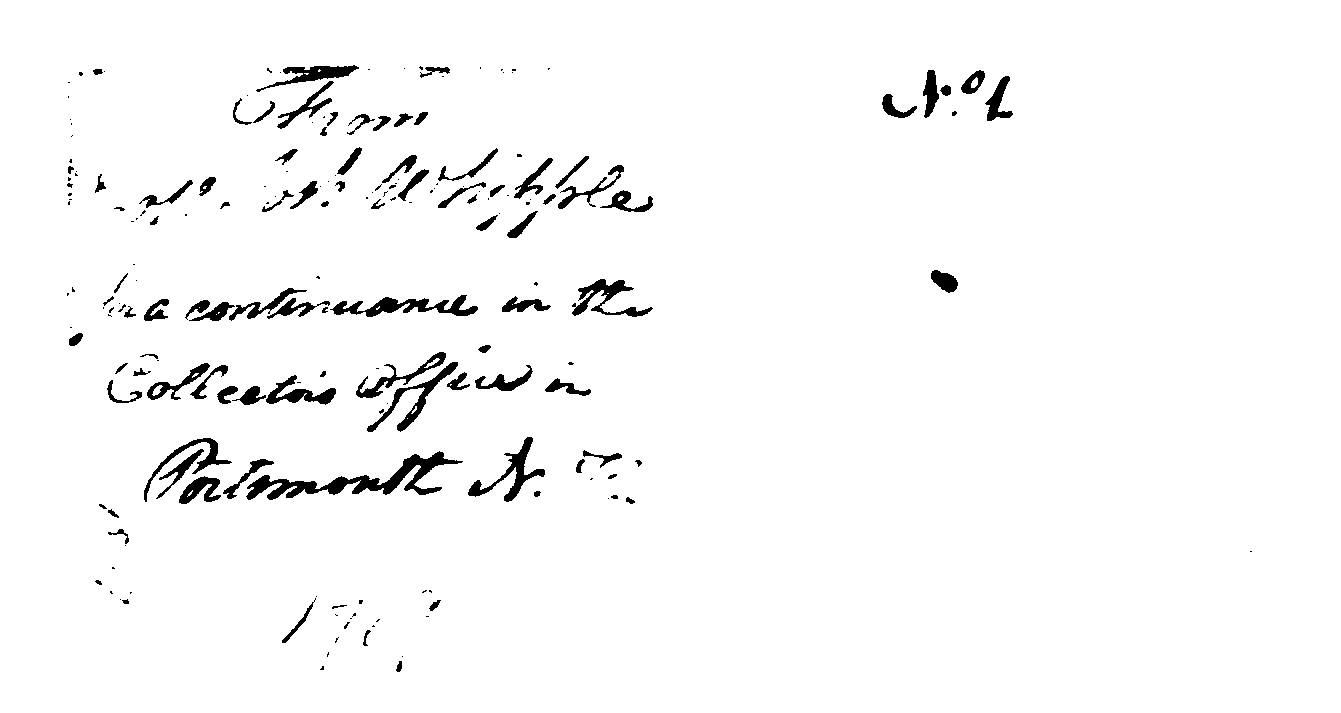 From
Whipple
for a continuance in the
Collectors Office in
Portsmouth N.
No. 1